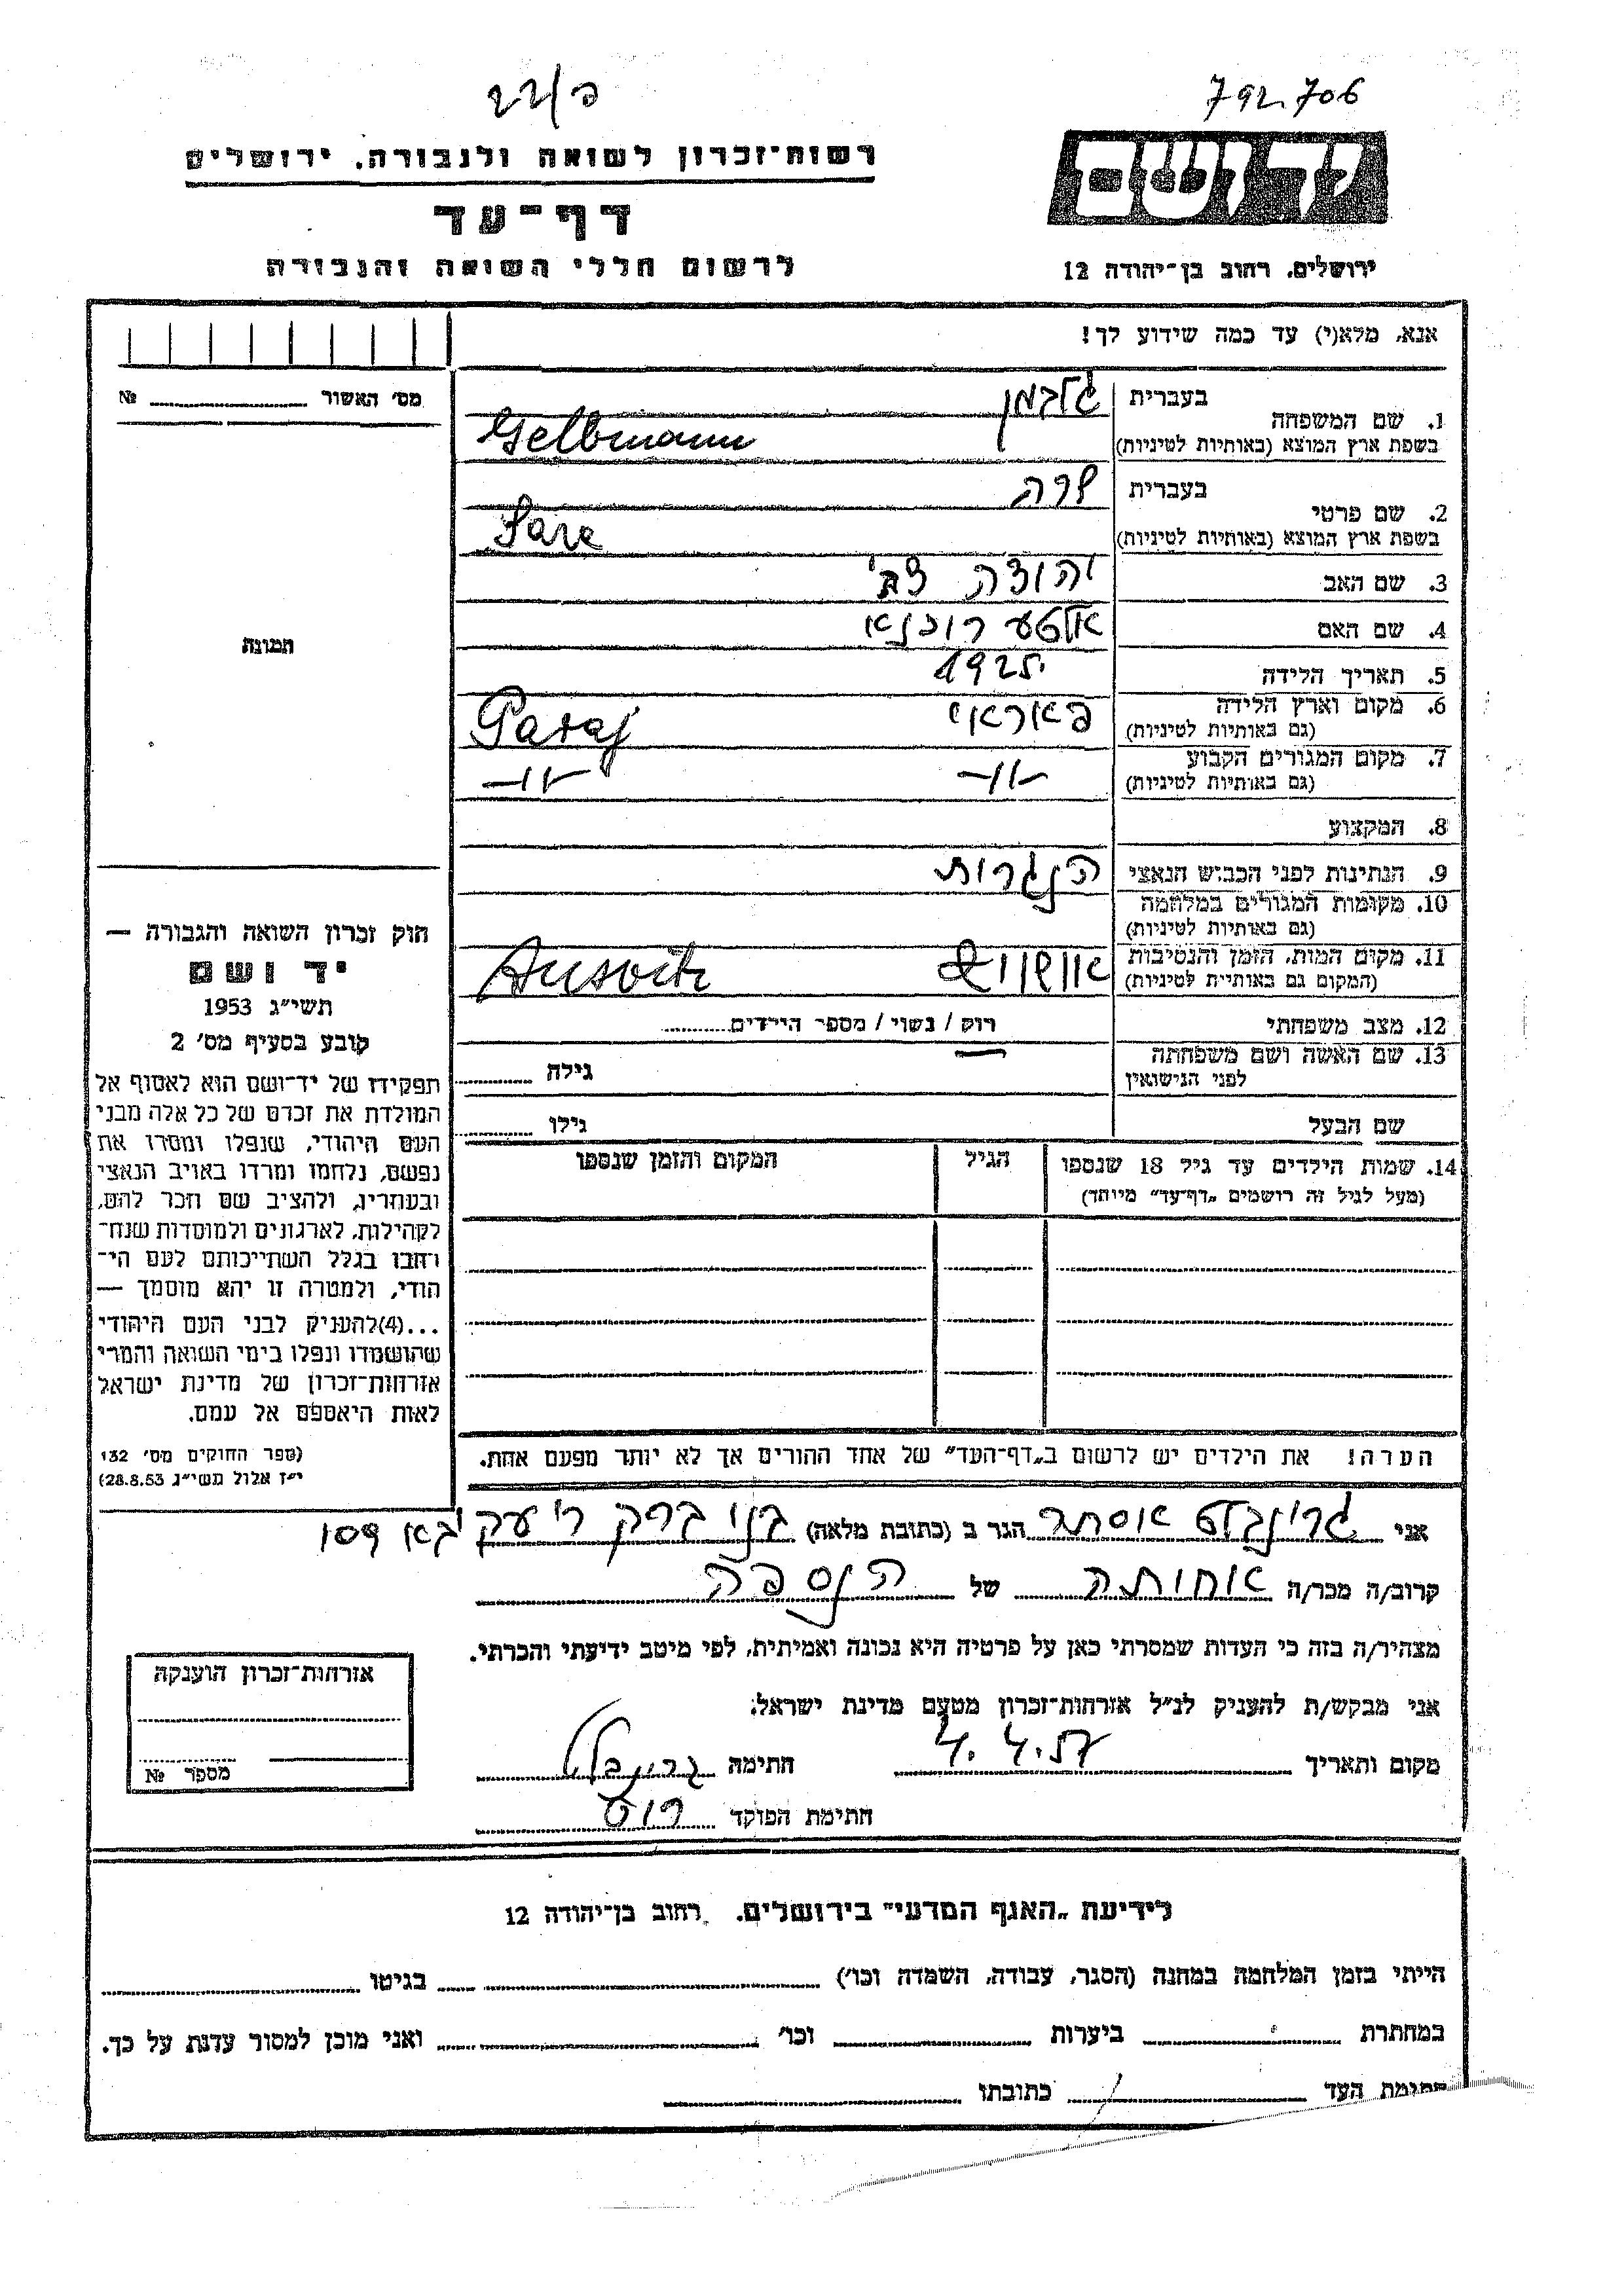 פ/22
792.706
רשות־זכרון לשואה ולגבורה, ירושלים
יד ושם
דף־עד
לרשום חללי השואה והגבורה
ירושלים, רחוב בן־יהודה 12
אנא, מלא(י) עד כמה שידוע לך!
מס׳ האשור № 
1. שם המשפחה
בעברית גלבמן
בשפת ארץ המוצא (באותיות לטיניות) Gelbmann
2. שם פרטי
בעברית שרה
בשפת ארץ המוצא (באותיות לטיניות) Sare
3. שם האב יהודה צבי
4. שם האם
5. תאריך הלידה 1925
6. מקום וארץ הלידה (גם באותיות לטיניות) פאראי Paraj
7. מקום המגורים הקבוע (גם באותיות לטיניות) -"- -"-
8. המקצוע
9. הנתינות לפני הכבוש הנאצי הנגרות
10. מקומות המגורים במלחמה (גם באותיות לטיניות)
11. מקום המות, הזמן והנסיבות (המקום גם באותיות לטיניות) אושוויץ Ausvitz
12. מצב משפחתי רוק / נשוי / מספר הילדים
13. שם האשה ושם משפחתה לפני הנישואין גילה
שם הבעל גילו
14. שמות הילדים עד גיל 18 שנספו
(מעל לגיל זה רושמים „דף־עד״ מיוחד)
הגיל
המקום והזמן שנספו
הערה! את הילדים יש לרשום ב„דף־העד״ של אחד ההורים אך לא יותר מפעם אחת.
תמונה
חוק זכרון השואה והגבורה —
יד ושם
תשי״ג 1953
קובע בסעיף מס׳ 2
תפקידו של יד־ושם הוא לאסוף אל
המולדת את זכרם של כל אלה מבני
העם היהודי, שנפלו ומסרו את
נפשם, נלחמו ומרדו באויב הנאצי
ובעוזריו, ולהציב שם וזכר להם,
לקהילות, לארגונים ולמוסדות שנח־
רבו בגלל השתייכותם לעם הי־
הודי, ולמטרה זו יהא מוסמך —
...(4)להעניק לבני העם היהודי
שהושמדו ונפלו בימי השואה והמרי
אזרחות־זכרון של מדינת ישראל
לאות היאספם אל עמם.
(ספר החוקים מס׳ 132
י״ז אלול תשי״ג 28.8.53)
אני גרינבלט אסתר הגר ב (כתובת מלאה) בני ברק ר׳ עקיבא
קרוב/ה מכר/ה אחותה של הנספה
מצהיר/ה בזה כי העדות שמסרתי כאן על פרטיה היא נכונה ואמיתית, לפי מיטב ידיעתי והכרתי.
אני מבקש/ת להעניק לנ״ל אזרחות־זכרון מטעם מדינת ישראל:
מקום ותאריך 4.4.57 חתימה גרינבלט
חתימת הפוקד
אזרחות־זכרון הוענקה
מספר №
לידיעת „האגף המדעי״ בירושלים, רחוב בן־יהודה 12
הייתי בזמן המלחמה במחנה (הסגר, עבודה, השמדה וכו׳) בגיטו
במחתרת ביערות וכו׳ ואני מוכן למסור עדות על כך.
חתימת העד כתובתו